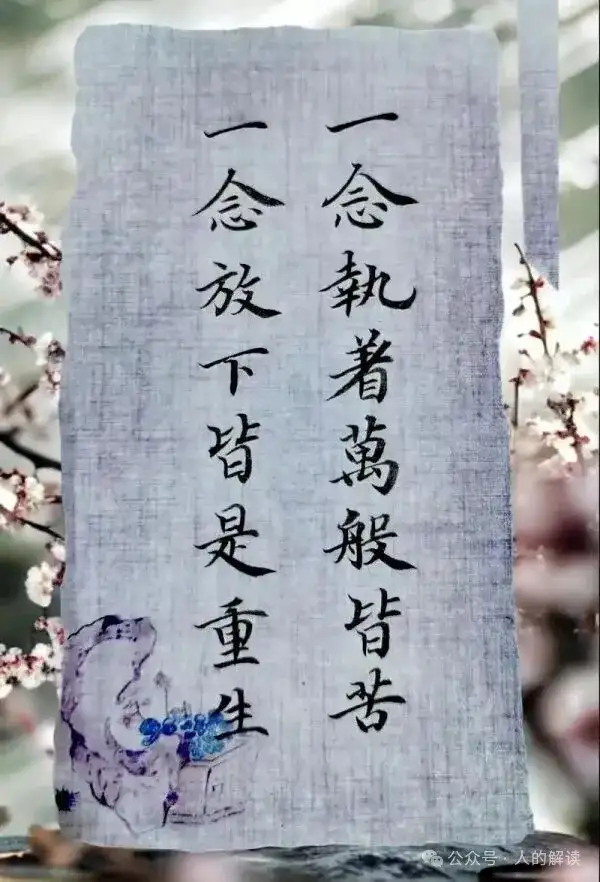 一念執着萬般皆苦
一念放下皆是重生
公众号·人的解读